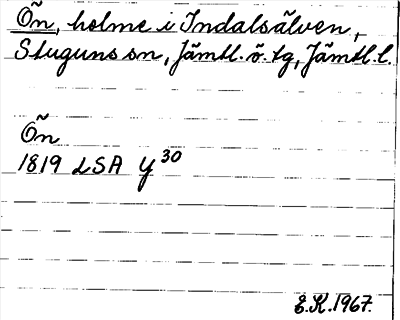 Ön, holme i Indalsälven,
Stuguns sn, Jämtl. ö. tg, Jämtl. l.
Ön
1819 LSA Y 30
E.K. 1967.